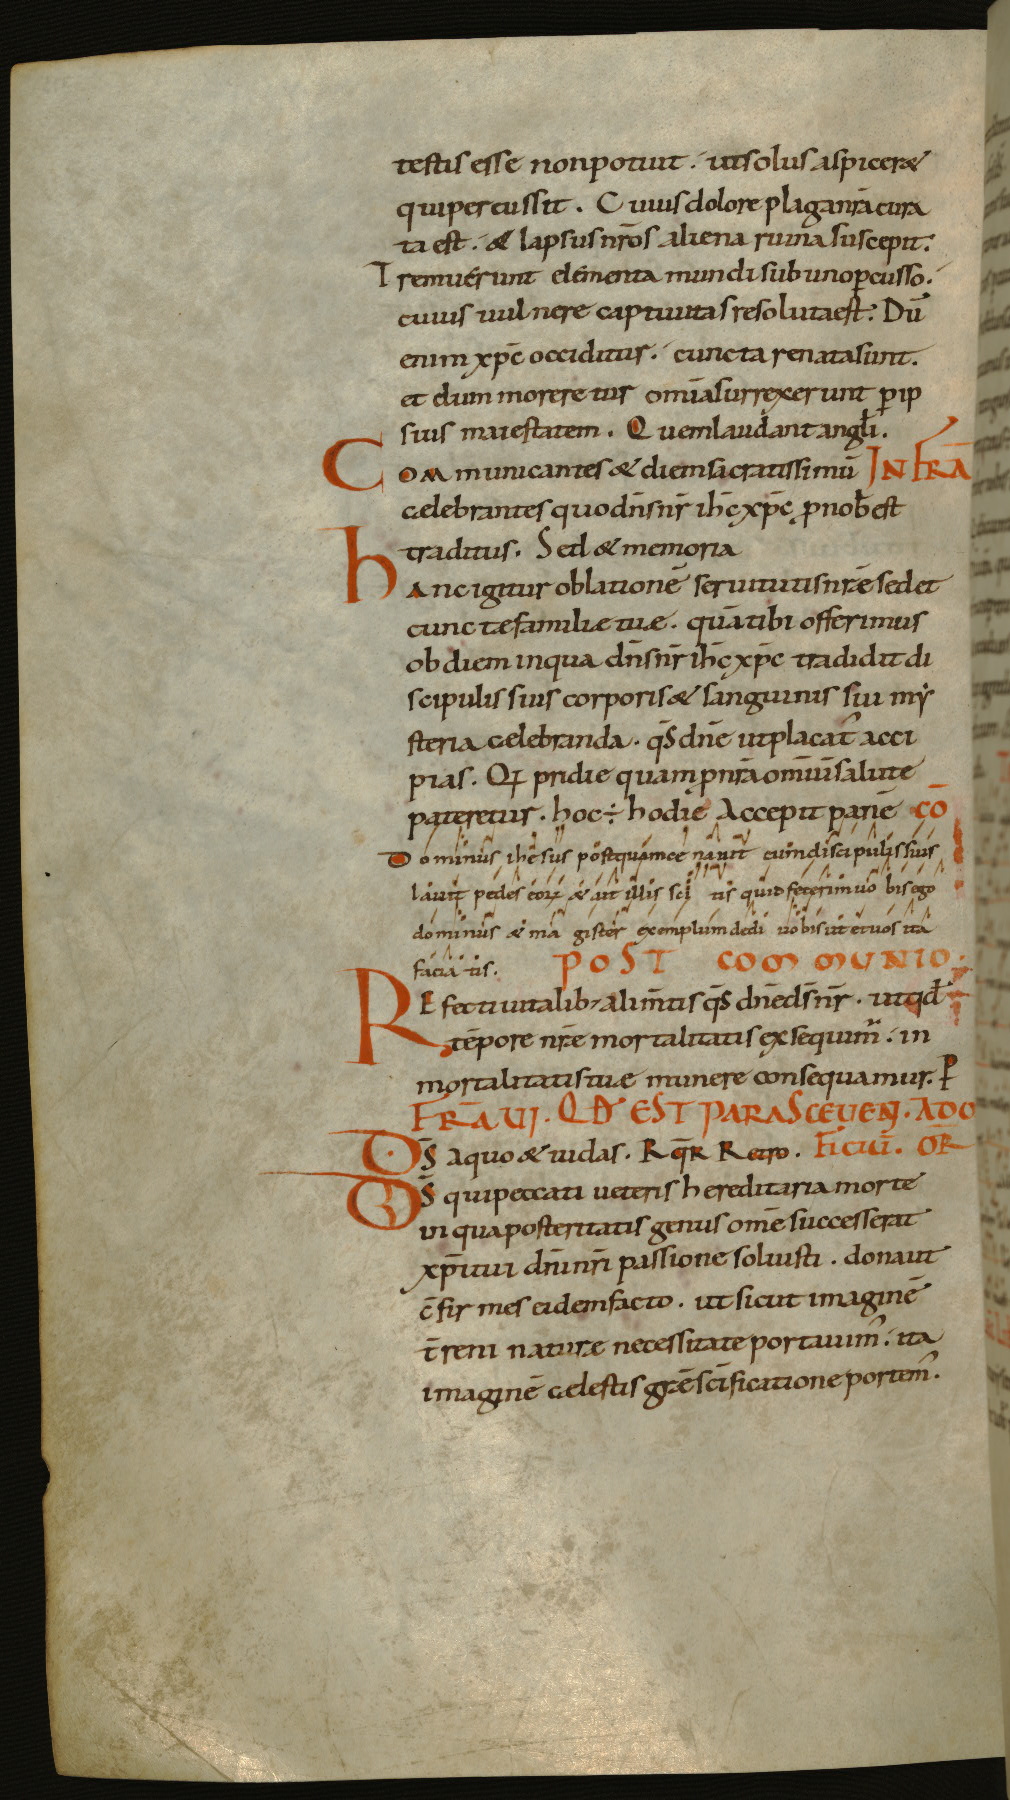 testis esse non potuit. ut solus aspicer&
qui percussit. Cuius dolore plaga nr̄a cura
ta est. & lapsus nr̄os aliena ruina suscepit.
Tremuerunt elementa mundi sub uno p̄cusso.
cuius uulnere captiuitas resoluta est. Dū
enim xp̄c occiditur. cuncta renata sunt.
et dum moreretur omīa surrexerunt p̄ ip
sius maiestatem. Quem laudant angl̄i.
Communicantes & diem sacratissimū INFRĀ
celebrantes quo dn̄s nr̄ ih̄c xp̄c p̄ nob̄ est
traditus. Sed & memoria
hanc igitur oblationē seruitutis nr̄ę sed et
cunctæ familiæ tuæ. quā tibi offerimus
ob diem in qua dn̄s nr̄ ih̄c xp̄c tradidit di
scipulis suis corporis & sanguinis sui my
steria celebranda. qs̄ dn̄e ut placat᾽ acci
pias. Qi pridie quam p̄ nr̄a omiū salute
pateretur. hoc ÷ hodie Accepit panē CŌ
Dominus ihesus postquam cenauit cum discipulis suis
lauit pedes eoꝝ & ait illis scitis quid fecerim uobis ego
dominus & magister exemplum dedi uobis ut et uos ita
faciatis. POST COMMUNIO.
Refecti uitalib; alim̄tis qs̄ dn̄e ds̄ nr̄. ut qd̄
tēpore nr̄e mortalitatis exsequim᾽. in
mortalitatis tuæ munere consequamur. P̄
FR̄A VI. QĐ EST PARASCEUEN. AD O
Ds̄ a quo & iudas. Rq̄R Retro. FICIŪ. OR̄
Ds̄ qui peccati ueteris hereditaria morte
in qua posteritatis genus omē successerat
xp̄i tui dn̄i nr̄i passione soluisti. dona ut
c̄firmes eidem facto. ut sicut imaginē
t̄reni naturæ necessitate portauim᾽. ita
imaginē cælestis gr̄e sc̄ificatione portem᾽.